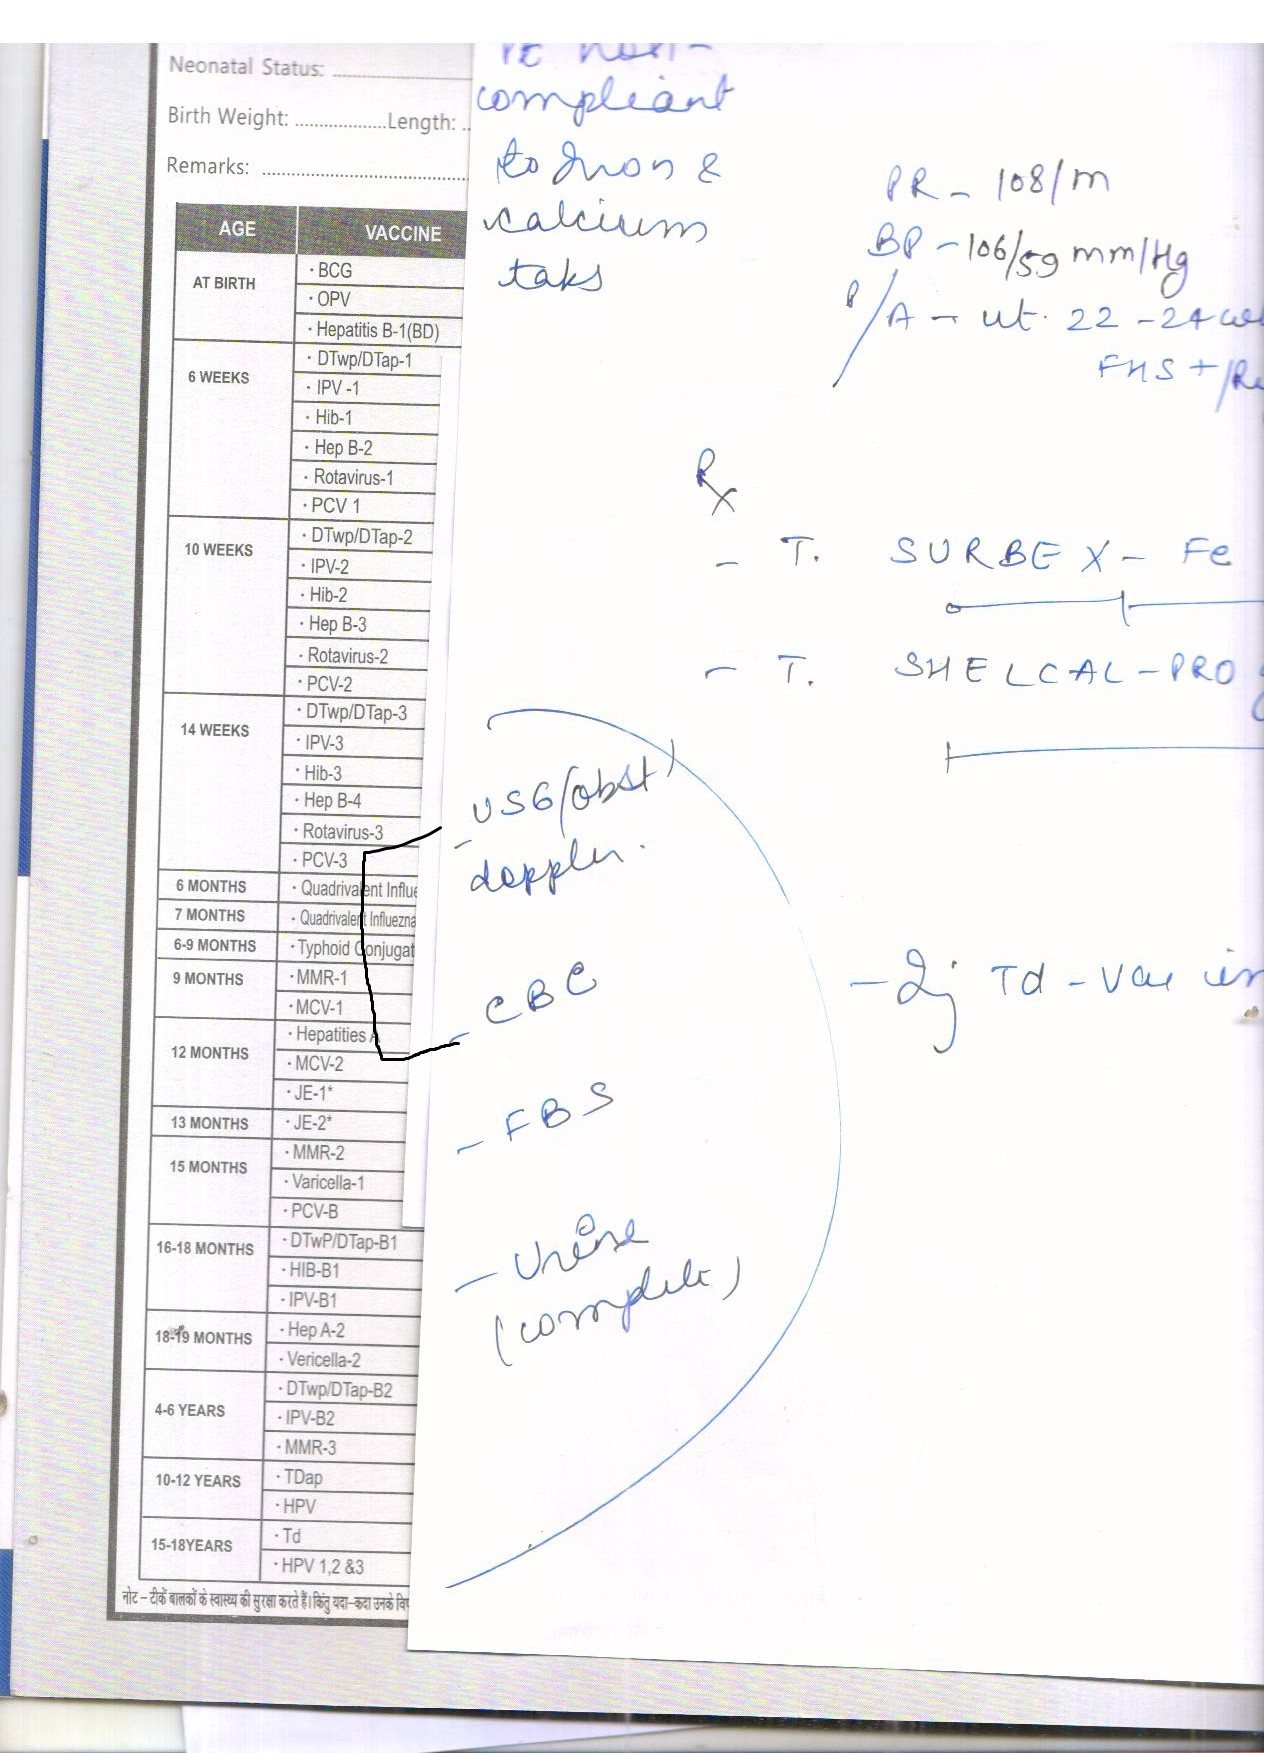 Neonatal Status:
Birth Weight: Length:
Remarks:
AGE VACCINE
AT BIRTH
· BCG
· OPV
· Hepatitis B-1(BD)
6 WEEKS
· DTwp/DTap-1
· IPV -1
· Hib-1
· Hep B-2
· Rotavirus-1
· PCV 1
10 WEEKS
· DTwp/DTap-2
· IPV-2
· Hib-2
· Hep B-3
· Rotavirus-2
· PCV-2
14 WEEKS
· DTwp/DTap-3
· IPV-3
· Hib-3
· Hep B-4
· Rotavirus-3
· PCV-3
6 MONTHS · Quadrivalent Influe
7 MONTHS · Quadrivalent Influezna
6-9 MONTHS · Typhoid Conjugat
9 MONTHS
· MMR-1
· MCV-1
12 MONTHS
· Hepatities A
· MCV-2
· JE-1*
13 MONTHS · JE-2*
15 MONTHS
· MMR-2
· Varicella-1
· PCV-B
16-18 MONTHS
· DTwP/DTap-B1
· HIB-B1
· IPV-B1
18-19 MONTHS
· Hep A-2
· Vericella-2
4-6 YEARS
· DTwp/DTap-B2
· IPV-B2
· MMR-3
10-12 YEARS
· TDap
· HPV
15-18YEARS
· Td
· HPV 1,2 &3
नोट – टीकें बालकों के स्वास्थ्य की सुरक्षा करते हैं। किंतु यदा-कदा उनके
non-
compliant
to Iron &
calcium
tabs
PR - 108/m
BP - 106/59 mm/Hg
P/A - ut. 22 - 24
FHS +
Rx
- T. SURBEX - Fe
- T. SHELCAL - PRO
- USG (obst)
doppler.
- CBC
- FBS
- Urine
(complete)
- Inj Td - Vac